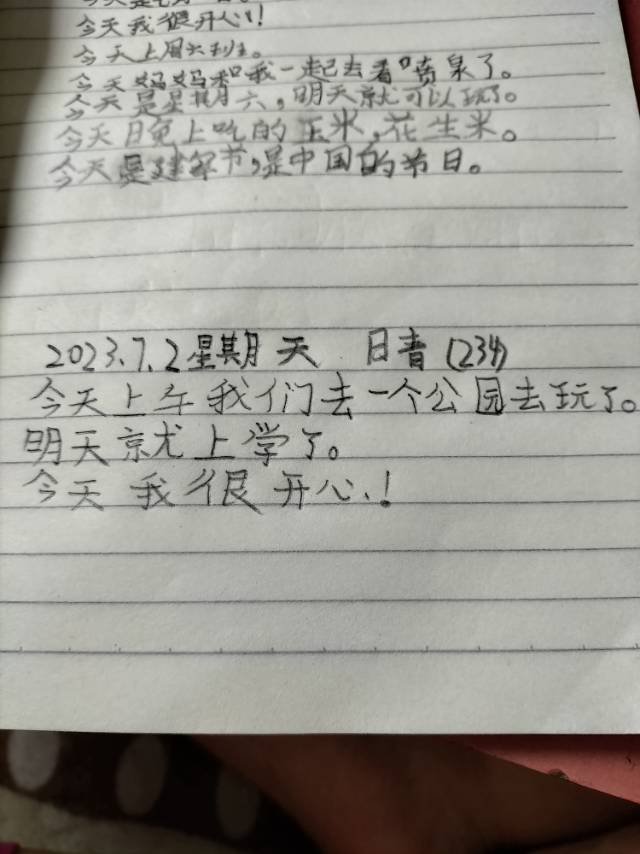 今天我很开心!
今天上
今天妈妈和我一起去看喷泉了。
今天是星期六，明天就可以玩了。
今天晚上吃的玉米，花生米。
今天是建军节，是中国的节日。
2023.7.2星期天 日音(234)
今天上午我们去一个公园去玩了。
明天就上学了。
今天我很开心!